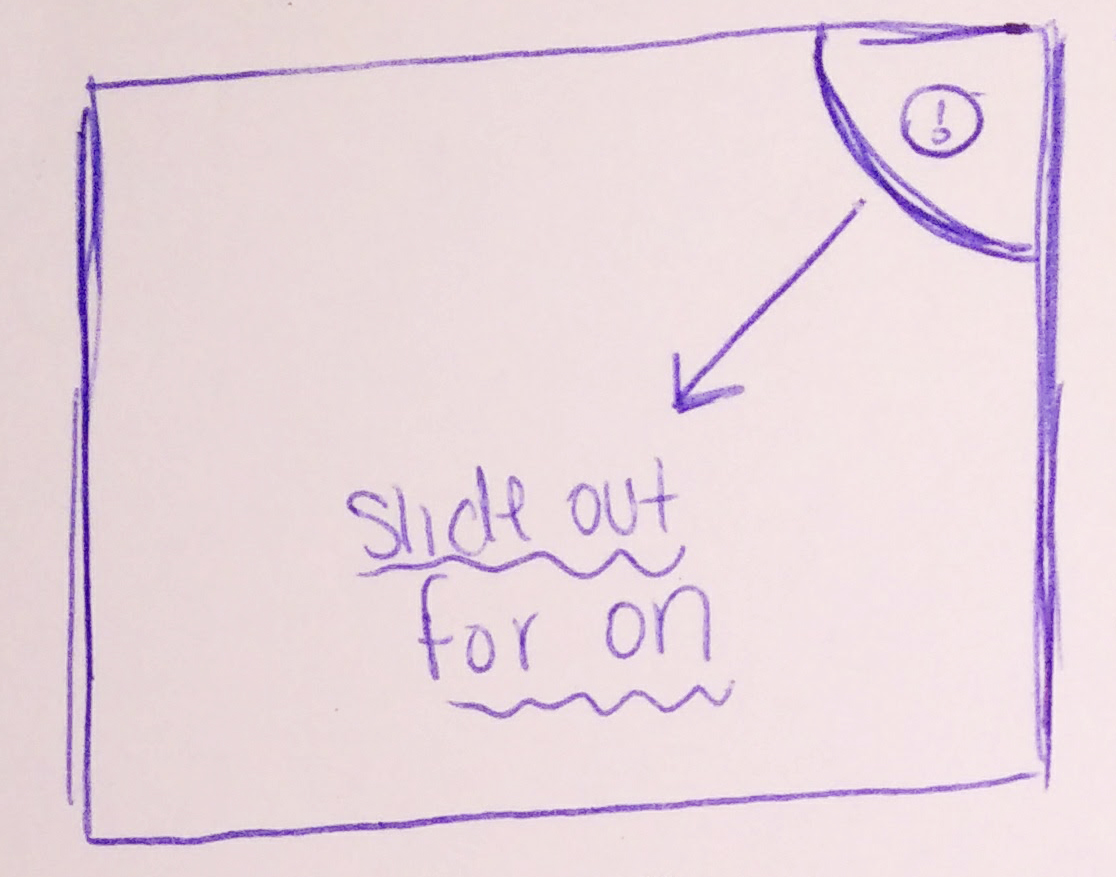 !
slide out
for on